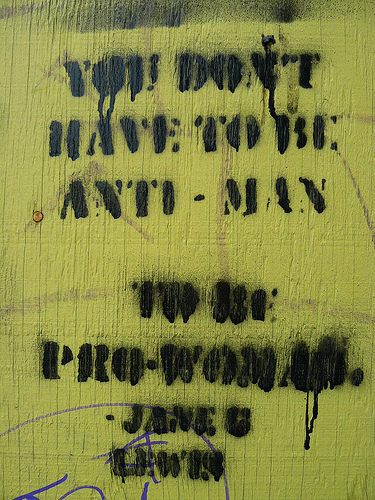 YOU DON'T
HAVE TO BE
ANTI-MAN
TO BE
PRO-WOMAN.
-JANE G
LEWIS